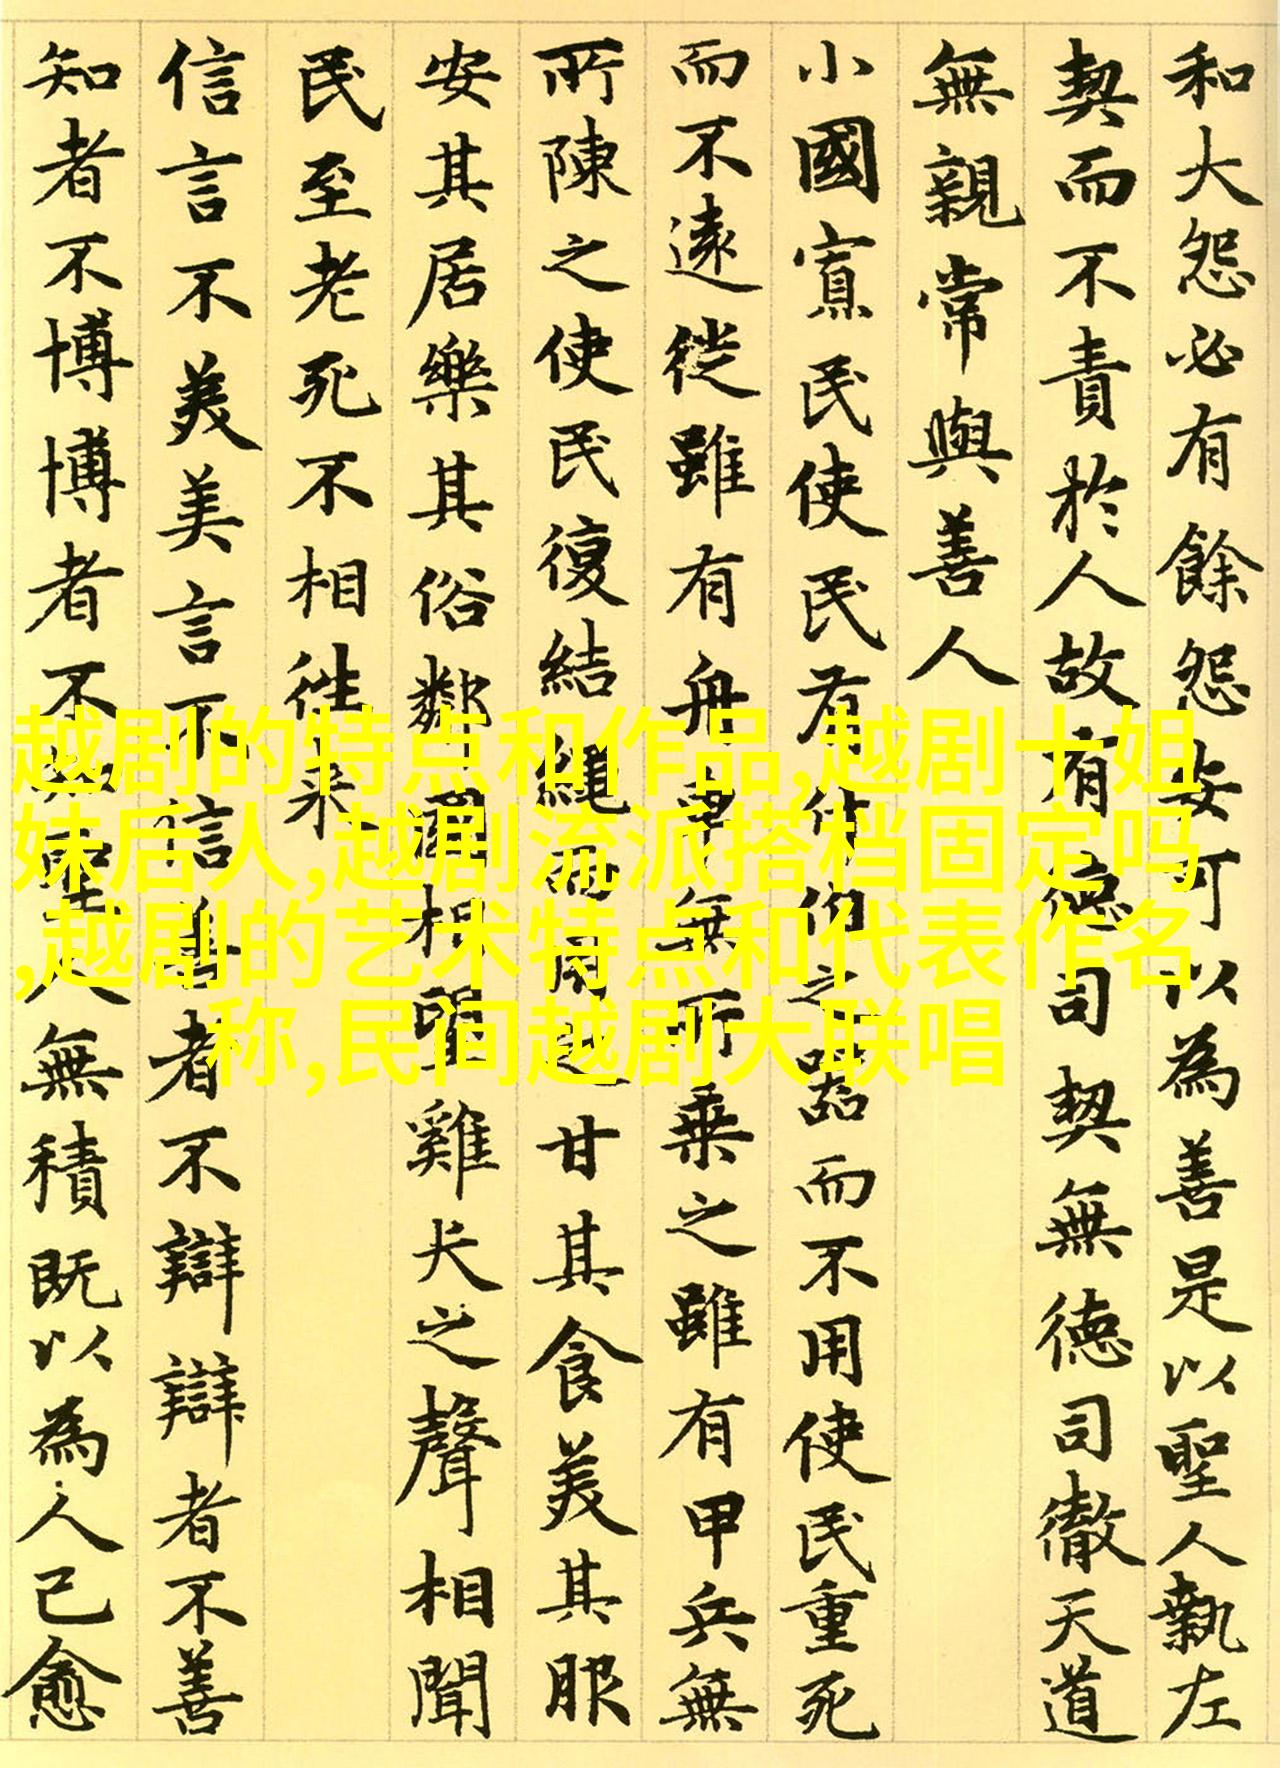 和大怨必有餘怨安可以為善是以聖人執左
契而不責於人故有德司契無德司徹天道
無親常與善人
小國寡民使民有什伯之器而不用使民重死
而不遠徙雖有舟轝無所乗之雖有甲兵無
所陳之使民復結繩而用之甘其食美其服
安其居樂其俗鄰國相望雞犬之聲相聞
民至老死不相往来
信言不美美言不信善者不辯辯者不善
知者不博博者不知聖人無積既以為人己愈
越剧的特点和作品,越剧十姐
妹后人,越剧流派搭档固定吗
,越剧的艺术特点和代表作名
称,民间越剧大联唱